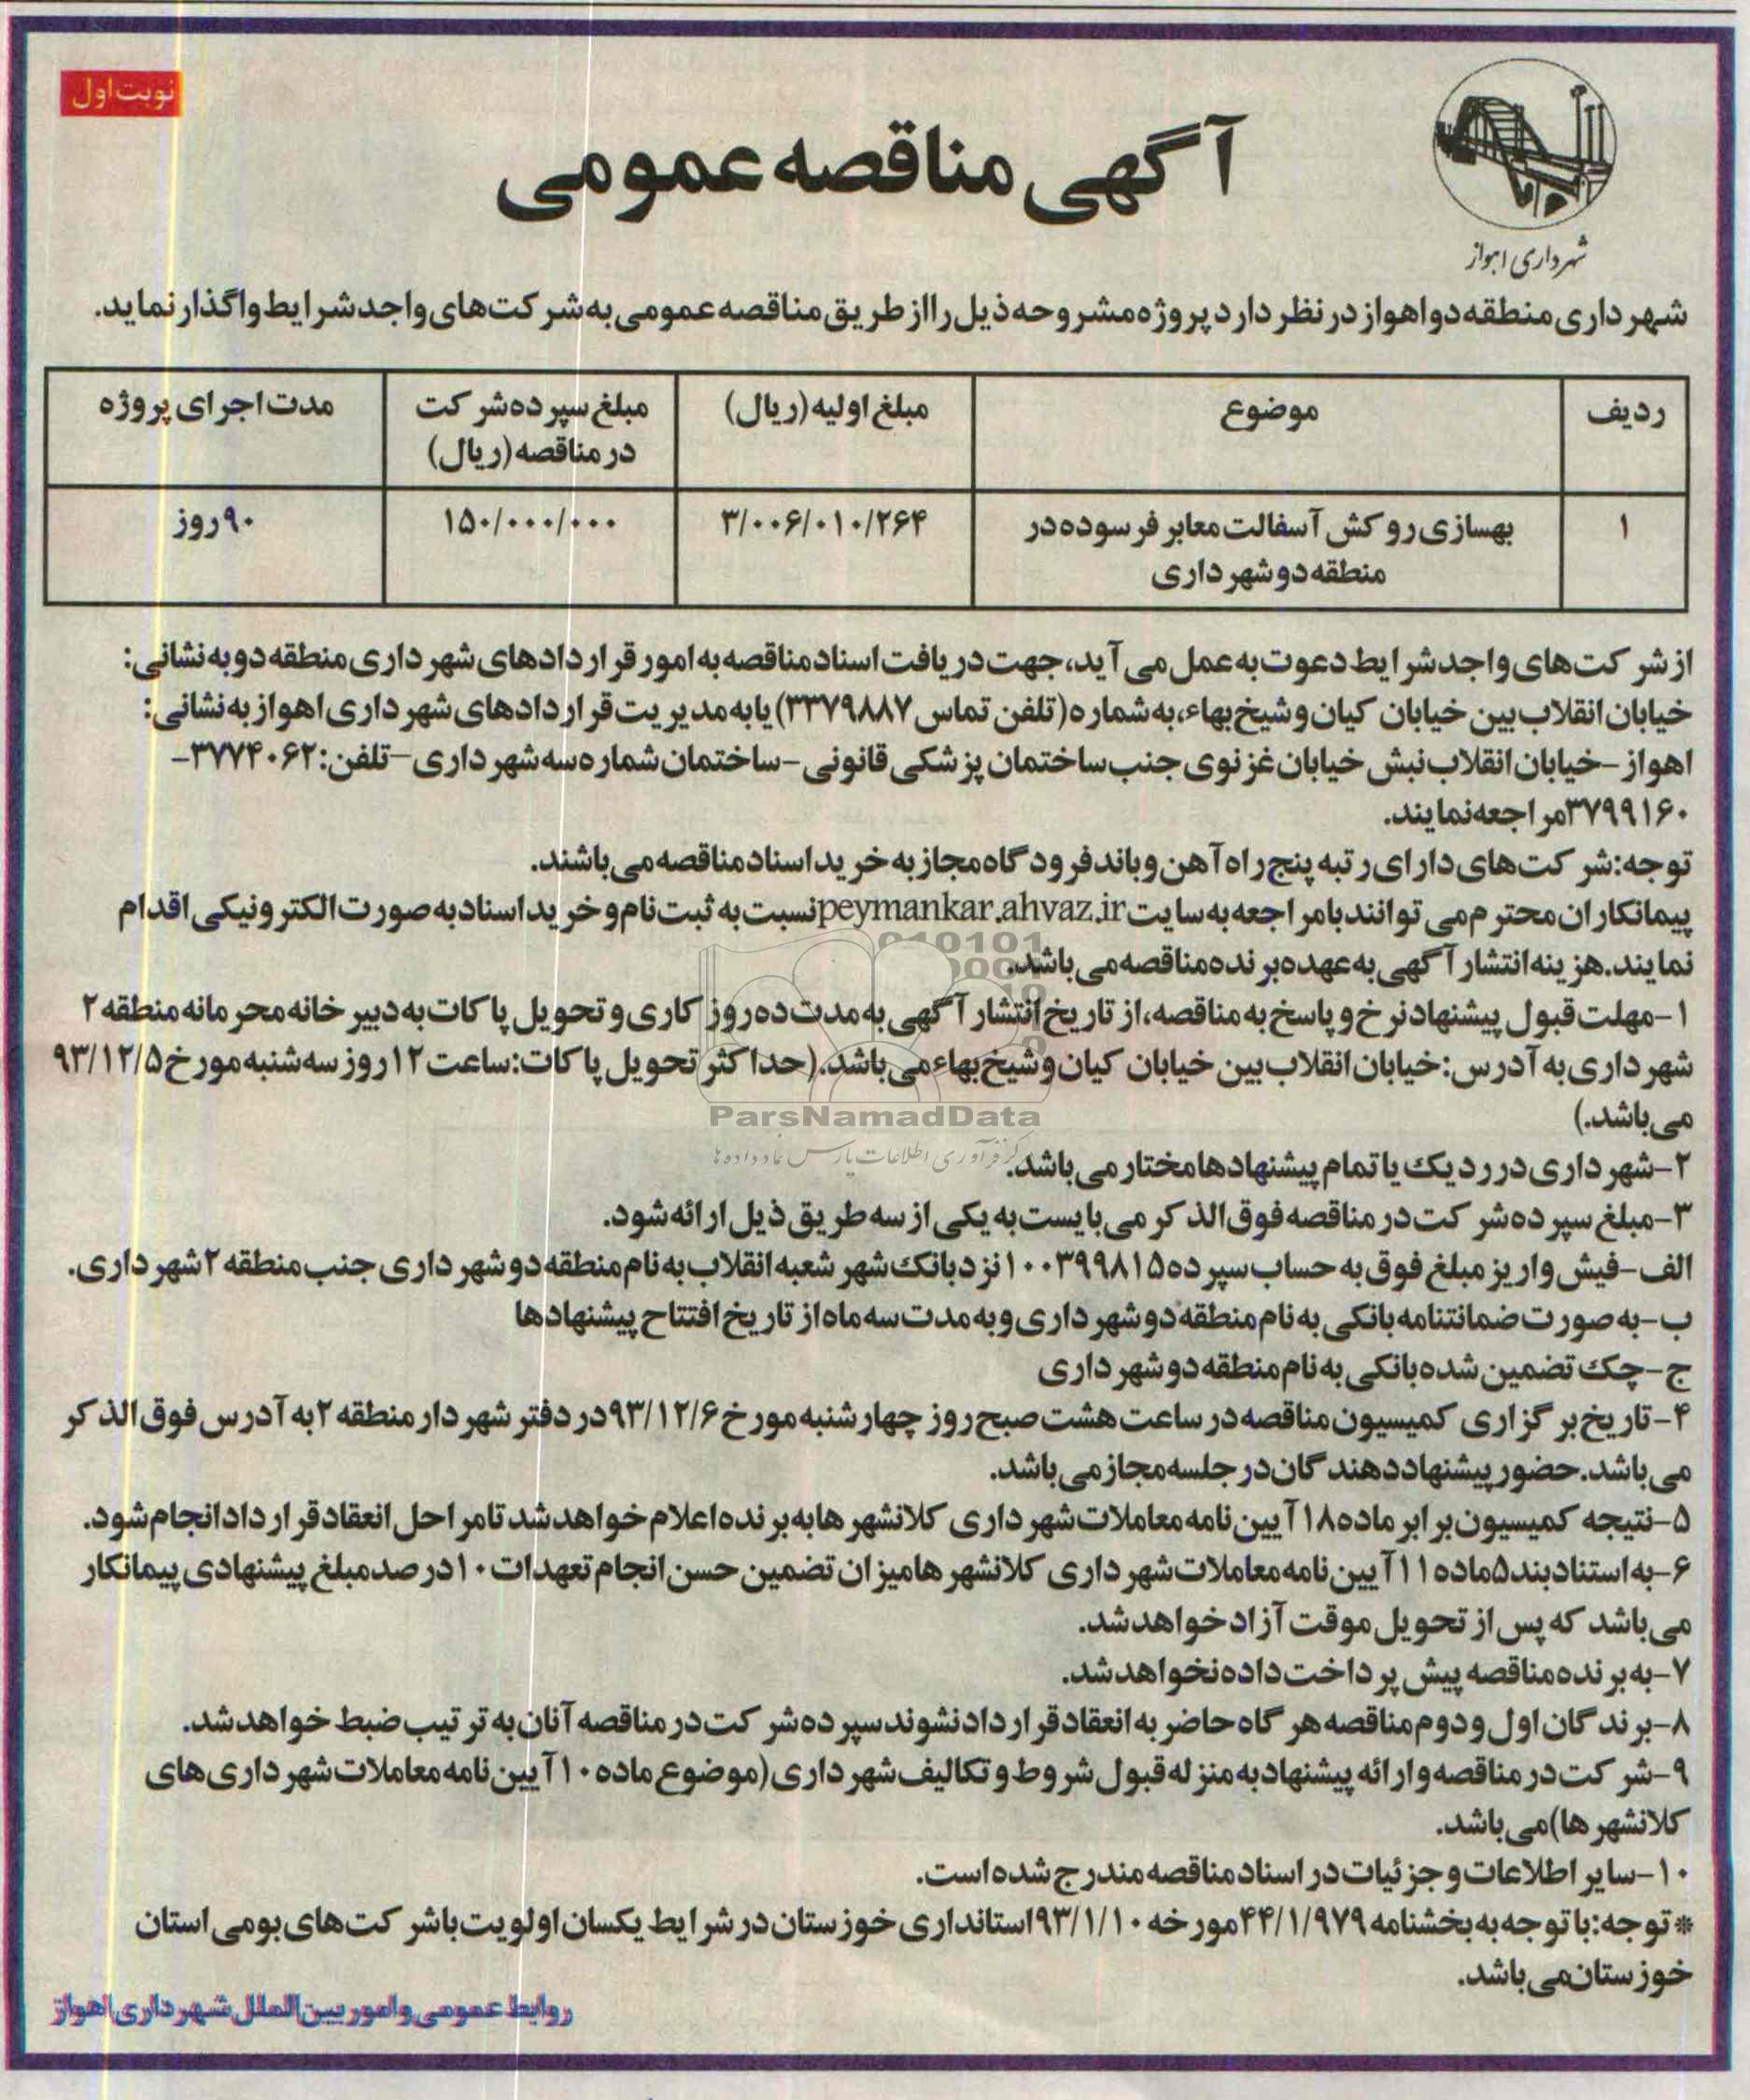 نوبت اول
آگهی مناقصه عمومی
شهرداری اهواز
شهرداری منطقه دو اهواز در نظر دارد پروژه مشروحه ذیل را از طریق مناقصه عمومی به شرکت‌های واجد شرایط واگذار نماید.
ردیف موضوع مبلغ اولیه (ریال) مبلغ سپرده شرکت در مناقصه (ریال) مدت اجرای پروژه
۱ بهسازی روکش آسفالت معابر فرسوده در منطقه دو شهرداری ۳/۰۰۶/۰۱۰/۲۶۴ ۱۵۰/۰۰۰/۰۰۰ ۹۰ روز
از شرکت‌های واجد شرایط دعوت به عمل می آید، جهت دریافت اسناد مناقصه به امور قراردادهای شهرداری منطقه دو به نشانی:
خیابان انقلاب بین خیابان کیان و شیخ بهاء، به شماره (تلفن تماس ۳۳۷۹۸۸۷) یا به مدیریت قراردادهای شهرداری اهواز به نشانی:
اهواز - خیابان انقلاب نبش خیابان غزنوی جنب ساختمان پزشکی قانونی - ساختمان شماره سه شهرداری - تلفن: ۳۷۷۴۰۶۲ -
۳۷۹۹۱۶۰ مراجعه نمایند.
توجه: شرکت‌های دارای رتبه پنج راه آهن و باند فرودگاه مجاز به خرید اسناد مناقصه می باشند.
پیمانکاران محترم می توانند با مراجعه به سایت peymankar.ahvaz.ir نسبت به ثبت نام و خرید اسناد به صورت الکترونیکی اقدام
نمایند. هزینه انتشار آگهی به عهده برنده مناقصه می باشد.
۱- مهلت قبول پیشنهاد نرخ و پاسخ به مناقصه، از تاریخ انتشار آگهی به مدت ده روز کاری و تحویل پاکات به دبیرخانه محرمانه منطقه ۲
شهرداری به آدرس: خیابان انقلاب بین خیابان کیان و شیخ بهاء می باشد. (حداکثر تحویل پاکات: ساعت ۱۲ روز سه شنبه مورخ ۹۳/۱۲/۵
می باشد.)
۲- شهرداری در رد یک یا تمام پیشنهادها مختار می باشد.
۳- مبلغ سپرده شرکت در مناقصه فوق الذکر می بایست به یکی از سه طریق ذیل ارائه شود.
الف- فیش واریز مبلغ فوق به حساب سپرده ۱۰۰۳۹۹۸۱۵ نزد بانک شهر شعبه انقلاب به نام منطقه دو شهرداری جنب منطقه ۲ شهرداری.
ب- به صورت ضمانتنامه بانکی به نام منطقه دو شهرداری و به مدت سه ماه از تاریخ افتتاح پیشنهادها
ج- چک تضمین شده بانکی به نام منطقه دو شهرداری
۴- تاریخ برگزاری کمیسیون مناقصه در ساعت هشت صبح روز چهارشنبه مورخ ۹۳/۱۲/۶ در دفتر شهردار منطقه ۲ به آدرس فوق الذکر
می باشد. حضور پیشنهاددهندگان در جلسه مجاز می باشد.
۵- نتیجه کمیسیون برابر ماده ۱۸ آیین نامه معاملات شهرداری کلانشهرها به برنده اعلام خواهد شد تا مراحل انعقاد قرارداد انجام شود.
۶- به استناد بند ۵ ماده ۱۱ آیین نامه معاملات شهرداری کلانشهرها میزان تضمین حسن انجام تعهدات ۱۰ درصد مبلغ پیشنهادی پیمانکار
می باشد که پس از تحویل موقت آزاد خواهد شد.
۷- به برنده مناقصه پیش پرداخت داده نخواهد شد.
۸- برندگان اول و دوم مناقصه هرگاه حاضر به انعقاد قرارداد نشوند سپرده شرکت در مناقصه آنان به ترتیب ضبط خواهد شد.
۹- شرکت در مناقصه و ارائه پیشنهاد به منزله قبول شروط و تکالیف شهرداری (موضوع ماده ۱۰ آیین نامه معاملات شهرداری های
کلانشهرها) می باشد.
۱۰- سایر اطلاعات و جزئیات در اسناد مناقصه مندرج شده است.
* توجه: با توجه به بخشنامه ۴۴/۱/۹۷۹ مورخه ۹۳/۱/۱۰ استانداری خوزستان در شرایط یکسان اولویت با شرکت‌های بومی استان
خوزستان می باشد.
روابط عمومی و امور بین الملل شهرداری اهواز
ParsNamadData
مرکز فرآوری اطلاعات پارس نماد داده ها